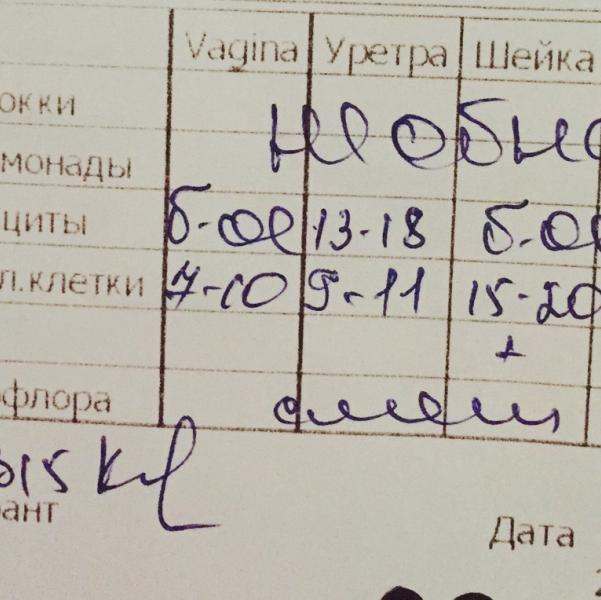 Vagina Уретра Шейка
окки
не обно
монады
циты б-ое 13-18 б-ое
л.клетки 7-10 9-11 15-20
+
флора смеш
ант
Дата